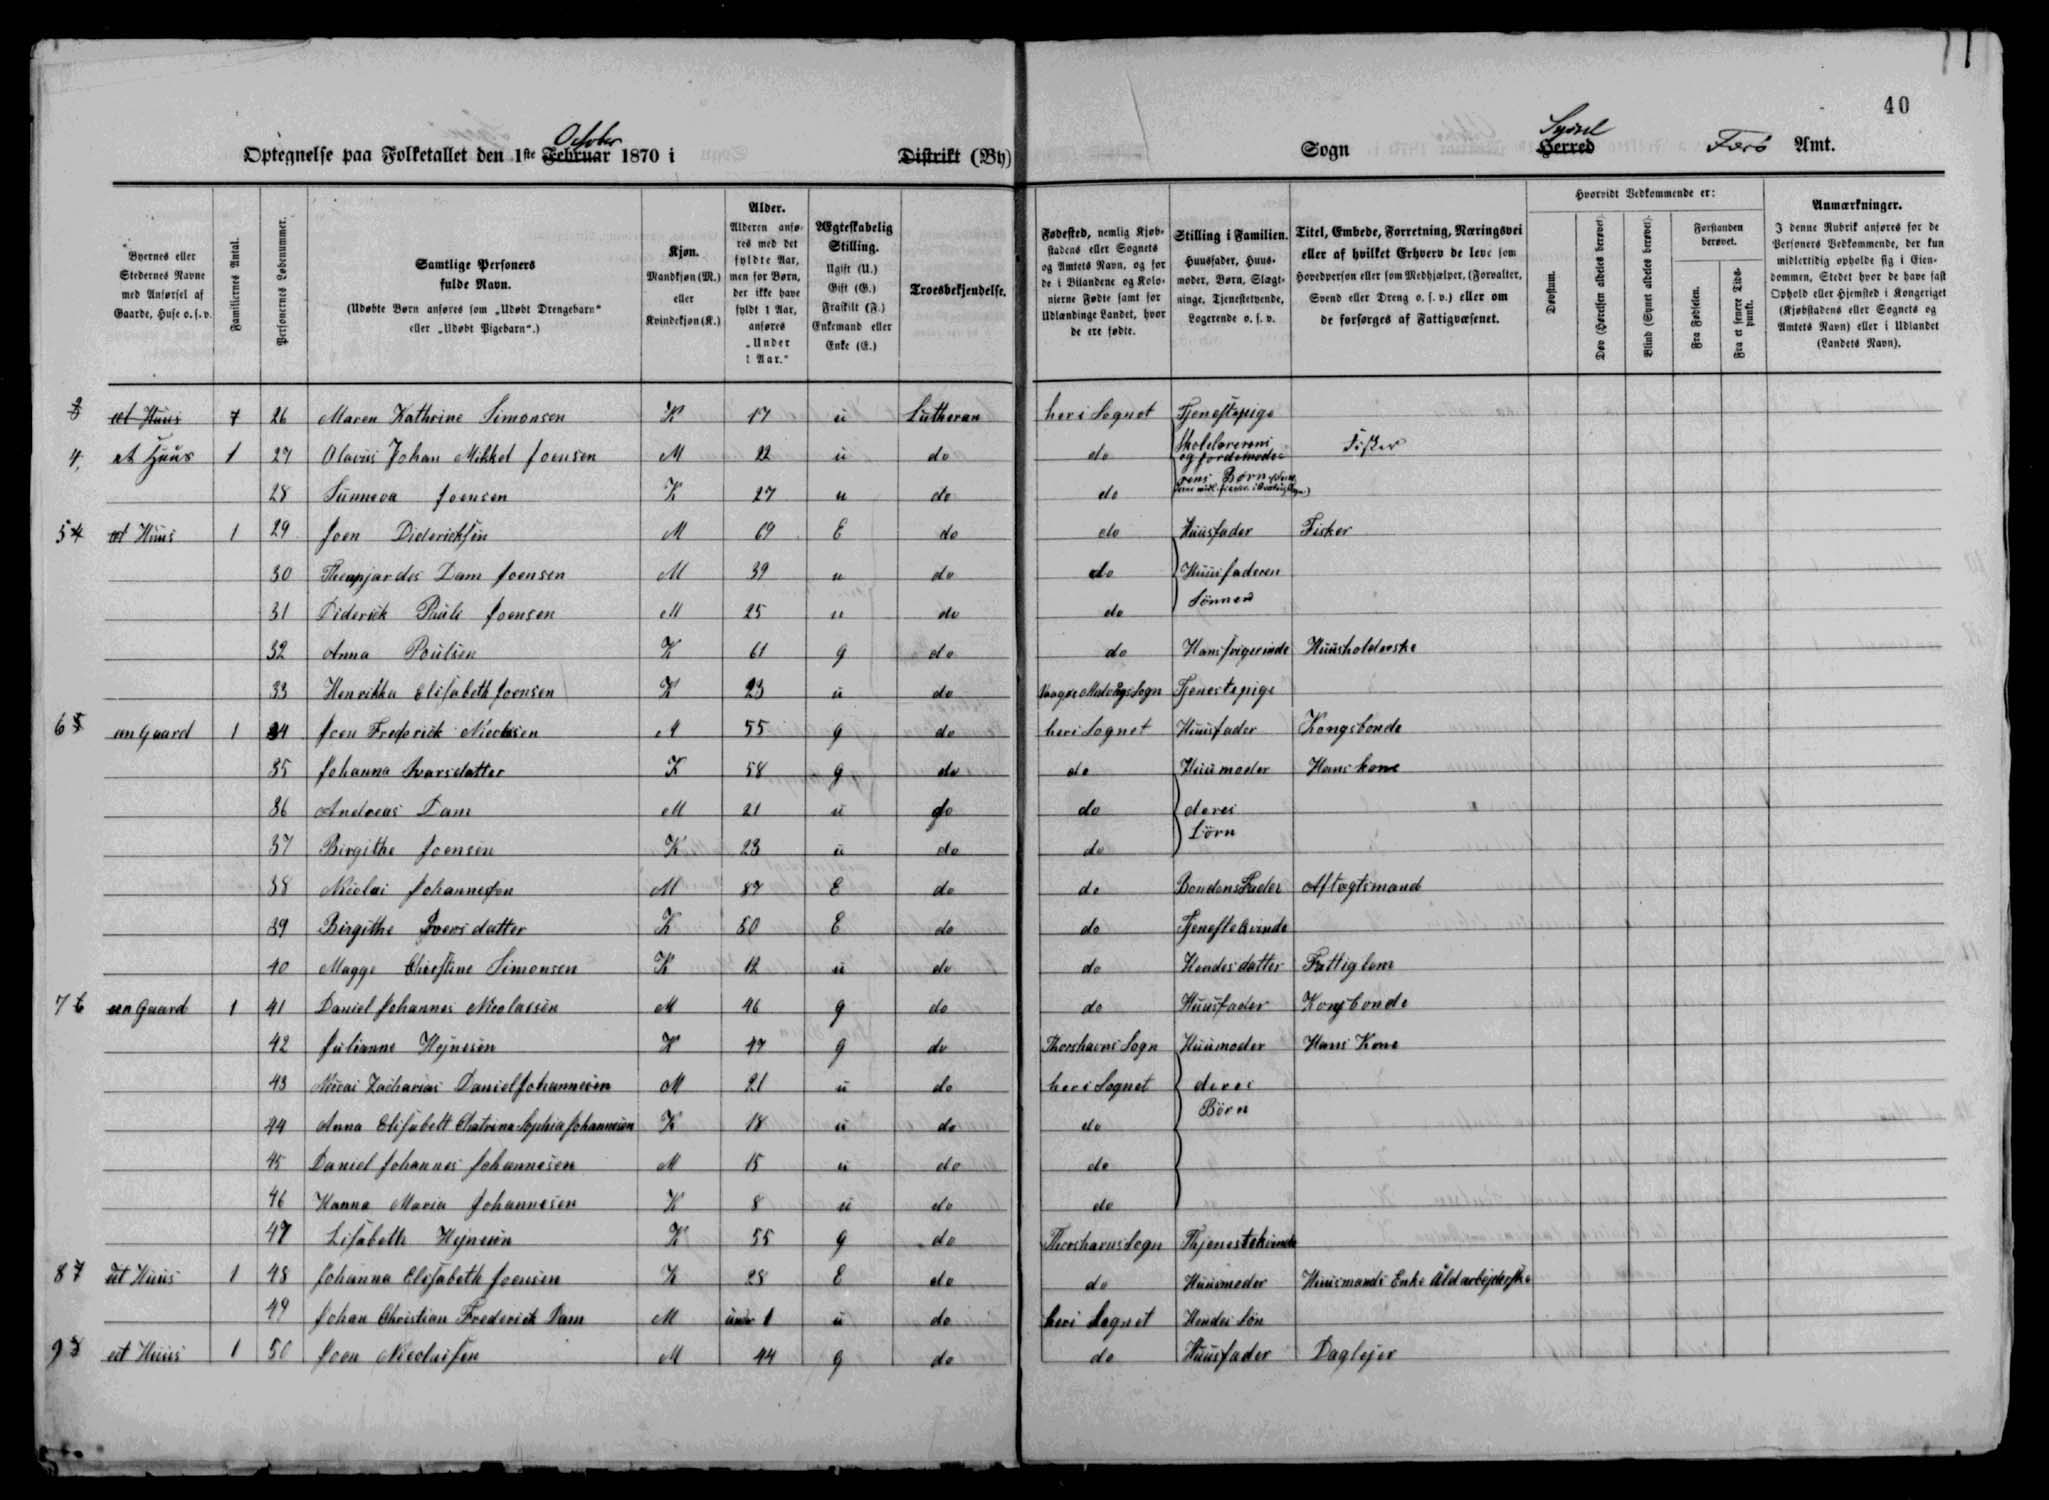 40
Optegnelse paa Folketallet den 1ste Februar October 1870 i Distrikt (By) Sogn Herred Sysel Færö Amt.
Byernes eller Stedernes Navne med Anførsel af Gaarde, Huse o. s. v.
Familiernes Antal.
Personernes Løbenummer.
Samtlige Personers fulde Navn.
(Udøbte Børn anføres som „Udøbt Drengebarn“ eller „Udøbt Pigebarn“.)
Kjøn. Mandkjøn (M.) eller Kvindekjøn (K.)
Alder. Alderen anføres med det fyldte Aar, men for Børn, der ikke have fyldt 1 Aar, anføres „Under 1 Aar.“
Ægteskabelig Stilling. Ugift (U.) Gift (G.) Fraskilt (F.) Enkemand eller Enke (E.)
Troesbekjendelse.
Fødested, nemlig Kjøbstadens eller Sognets og Amtets Navn, og for de i Bilandene og Kolonierne Fødte samt for Udlændinge Landet, hvor de ere fødte.
Stilling i Familien. Huusfader, Huusmoder, Børn, Slægtninge, Tjenestetyende, Logerende o. s. v.
Titel, Embede, Forretning, Næringsvei eller af hvilket Erhverv de leve som Hovedperson eller som Medhjælper, (Forvalter, Svend eller Dreng o. s. v.) eller om de forsørges af Fattigvæsenet.
Hvorvidt Vedkommende er:
Døvstum.
Døv (Hørelsen aldeles berøvet).
Blind (Synet aldeles berøvet).
Forstanden berøvet.
Fra Fødselen.
Fra et senere Tidspunkt.
Anmærkninger.
I denne Rubrik anføres for de Personers Vedkommende, der kun midlertidig opholde sig i Eiendommen, Stedet hvor de have fast Ophold eller Hjemsted i Kongeriget (Kjøbstadens eller Sognets og Amtets Navn) eller i Udlandet (Landets Navn).
et Huus 26 Maren Kathrine Simonsen K 17 u Lutheran heri Sognet Tjenestepige
4, et Huus 1 27 Olavus Johan Mikkel Joensen M 22 u do do Fisker
28 Sunneva Joensen K 27 u do do Børn
5 4 et Huus 1 29 Joen Didericksen M 69 E do do Huusfader Fisker
30 Dam Joensen M 39 u do do Huusfaderen
31 Diderick Pauli Joensen M 25 u do do Sönner
32 Anna Poulsen K 61 g do do Hansfvigerinde Huusholderske
33 Henrikka Elisabeth Joensen K 23 u do Sogn Tjenestepige
6 5 en Gaard 1 34 Joen Frederick Nicolaisen M 55 g do heri Sognet Huusfader Kongsbonde
35 Johanna Ivarsdatter K 58 g do do Huumoder Hans kone
36 Andreas Dam M 21 u do do deres
37 Birgithe Joensen K 23 u do do Börn
38 Nicolai Johannesson M 87 E do do Bondens Fader Aftægtsmand
39 Birgithe Iversdatter K 50 E do do Tjenestekvinde
40 Magge Christine Simonsen K 12 u do do Hendes datter Fattiglem
7 6 een Gaard 1 41 Daniel Johannes Nicolaisen M 46 g do do Huusfader Kongsbonde
42 Julianne Hejnesen K 47 g do Thorshavns Sogn Huumoder Hans Kone
43 Nicolai Zacharias Daniel Johannesen M 21 u do heri Sognet deres
44 Anna Elisabett Chatrina Sophia Johannesen K 18 u do do Börn
45 Daniel Johannes Johannesen M 15 u do do
46 Hanna Maria Johannesen K 8 u do do
47 Lisabeth Hejnesen K 55 g do Thorshavns Sogn Thjenestekvinde
8 7 et Huus 1 48 Johanna Elisabeth Joensen K 28 E do do Huusmoder Huusmands Enke Uldarbejderske
49 Johan Christian Frederick Dam M under 1 u do heri Sognet Hendes Sön
9 8 eet Huus 1 50 Joen Nicolaisen M 44 g do do Huusfader Daglejer